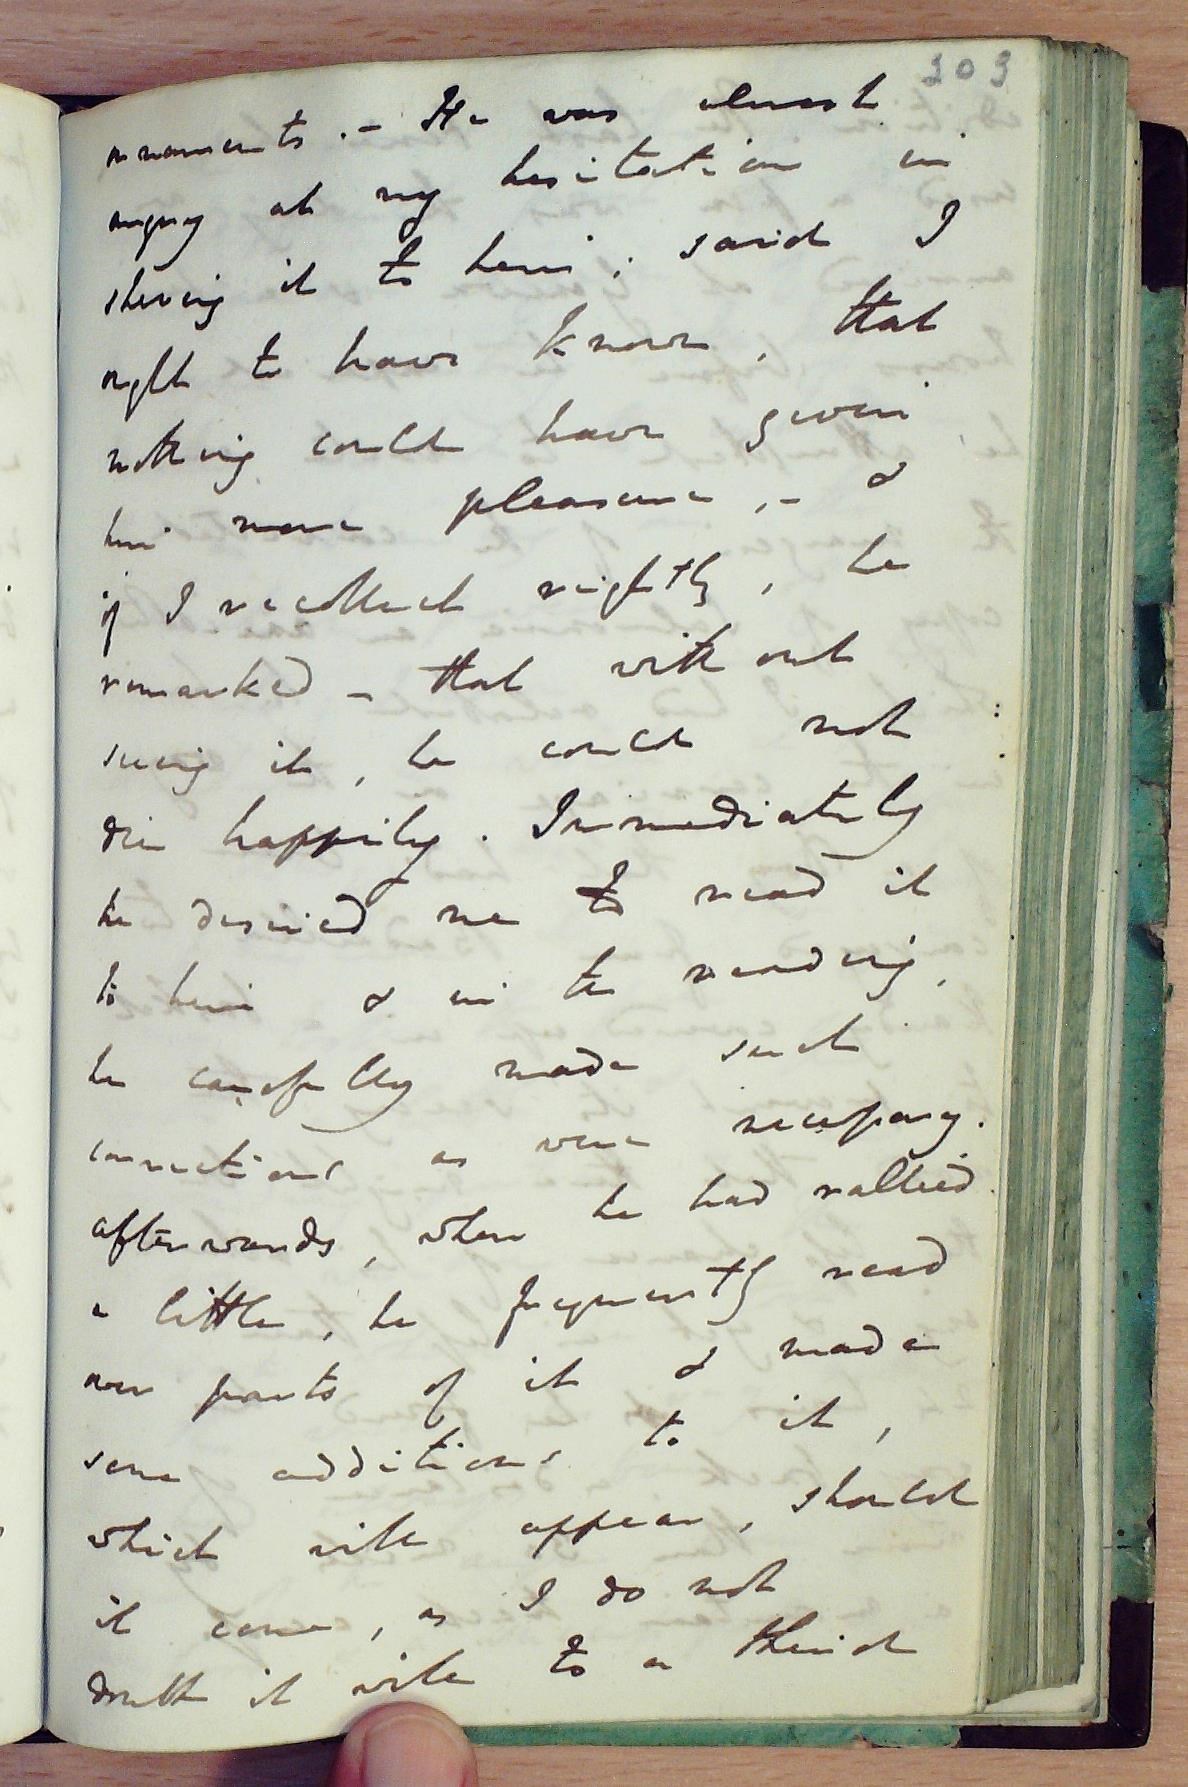 303
ornaments . – He was almost
angry at my hesitation in
shewing it to him ; said I
ought to have known , that
nothing could have given
him more pleasure , – &
if I recollect rightly , he
remarked – that without
seeing it , he could not
die happily . Immediately
he desired me to read it
to him & in the reading ,
he carefully made such
corrections as were necessary .
afterwards , when he had rallied
a little , he frequently read
over parts of it & made
some additions to it ,
which will appear , should
it come , as I do not
doubt it will to a third